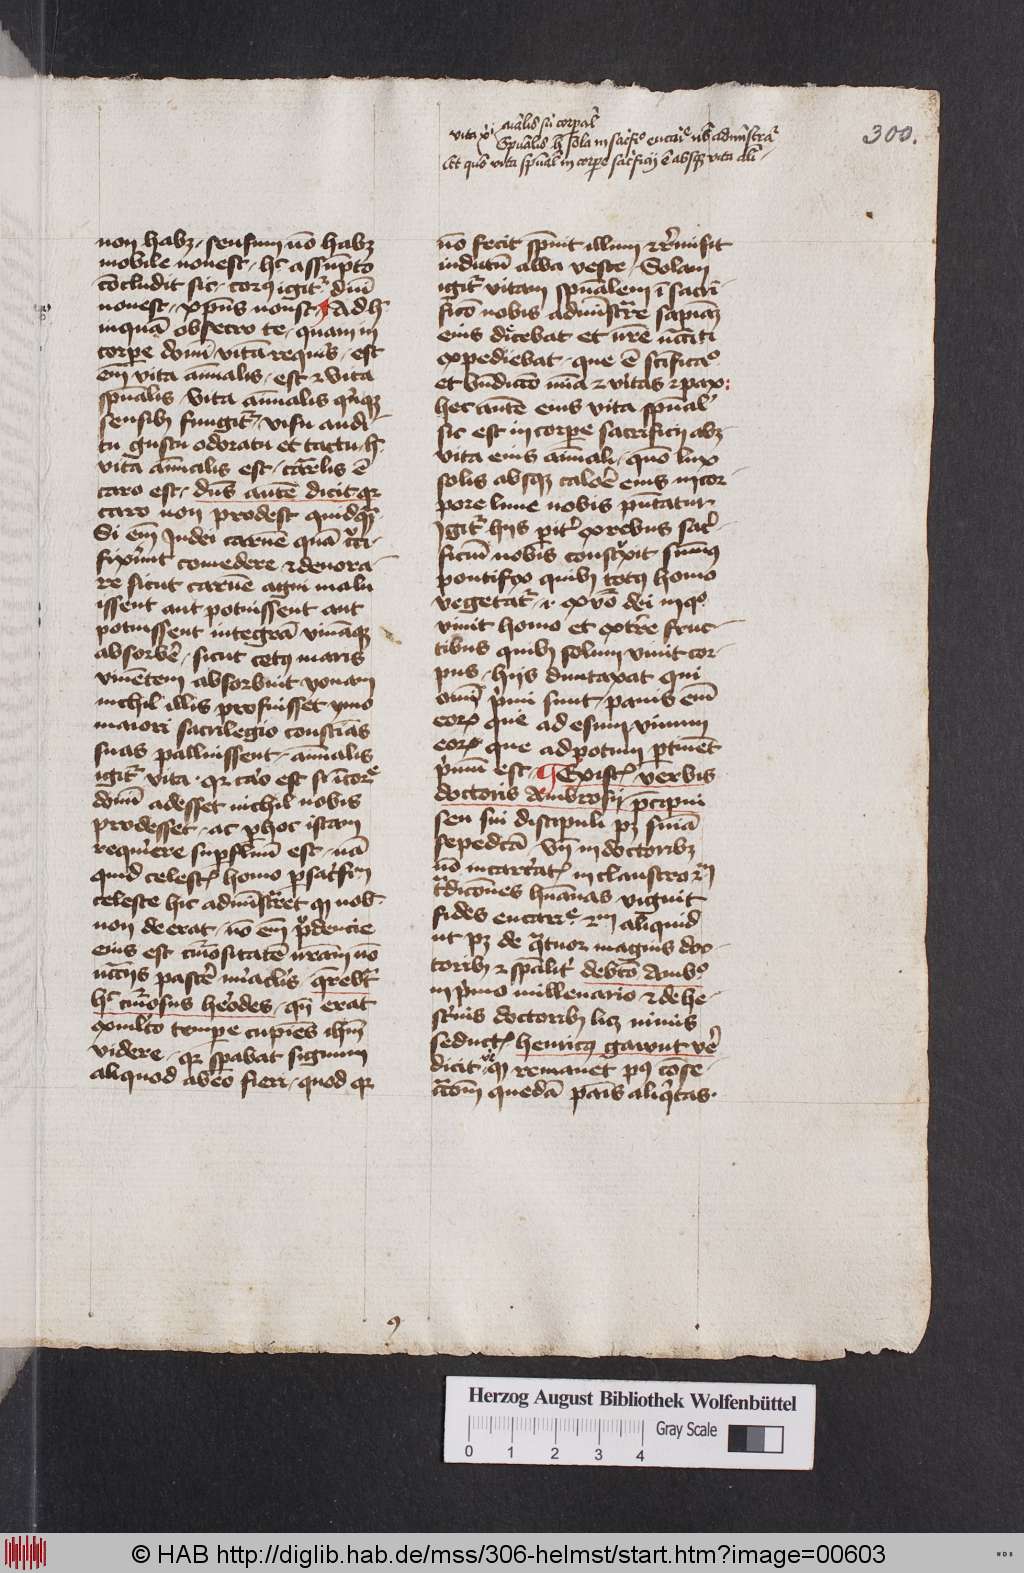 vita xi
aialis siue corporal
Spualis h sola in sacrfo eucar nob adminstra
Et quo vita spual in corpe sacrficij e absq vita aali
300.
non habz sensum no habz
mobile non est hc assumpto
cocludit sic corpus igit dni
non est xpus non est Ad h
inqua obsecro te quam in
corpe domi vita requiris est
em vita aimalis est et vita
spualis vita aimalis quinqz
sensibz fungitr visu audi
tu gustu odoratu et tactu h
vita aimalis est carlis e
caro est dns aute dicit qr
caro non prodest quidq
Si em Judei carne qua cruci
fixerunt comedere et devora
re sicut carne agni malu
issent aut potuissent aut
potuissent integra vivaqz
absorbe sicut cetus maris
vivetem absorbuit yonam
nichil illis profuisset ymo
maiori sacrilegio conscias
suas polluissent aimalis
igitr vita qr caro est si i corpe
domi adesset nichil nobis
prodesset ac p hoc istam
requirere supfluu est na
quid celestis homo p sacrficm
celeste hic adminstret qd nob
non deerat no em prudencie
eius est curiositate nram no
utilis pasce miraclis querebat
hc curiosus herodes qui erat
ex multo tempe cupies ihm
videre qr spabat signum
aliquod ab eo fieri quod qr
no fecit spuit illum et remisit
indutu alba veste Solam
igitr vitam spualem i sacri
ficio nobis adminstrare sapiaz
eius dicebat et nre utiliti
expediebat que e scifica
et bndictio viva et vitas et pax
hec aute eius vita spual
sic est in corpe sacrificij abz
vita eius aimali quo lux
solis absqz calore eius in cor
pore lune nobis putatur
Igitr hijs pit ex rebus sacri
ficiu nobis construxit sumus
pontifex quibz totus homo
vegetatr i ex vbo dei in quo
vivit homo et ex tre fruc
tibus quibz solum vivit cor
pus hijs duntaxat qui
oim primi sunt panis em
eorum que ad esum vinum
eorum que ad potum ptinet
primu est Ex istis verbis
doctoris Ambrosij precipui
seu sui discipuli pz sniam
sepedcta Vn in doctoribz
no incarceratis in claustrorum
tradiciones huanas viguit
fides eucare et in aliquid
ut pz de quatuor magnis doc
toribz et spalit debeto Ambo
in primo millenario et de he
sternis doctoribz licz nimis
seductis henricus gawnt ve
dicit qd remanet pus conse
cracom quedam panis aliquitas
Herzog August Bibliothek Wolfenbüttel
Gray Scale
0 1 2 3 4
© HAB http://diglib.hab.de/mss/306-helmst/start.htm?image=00603